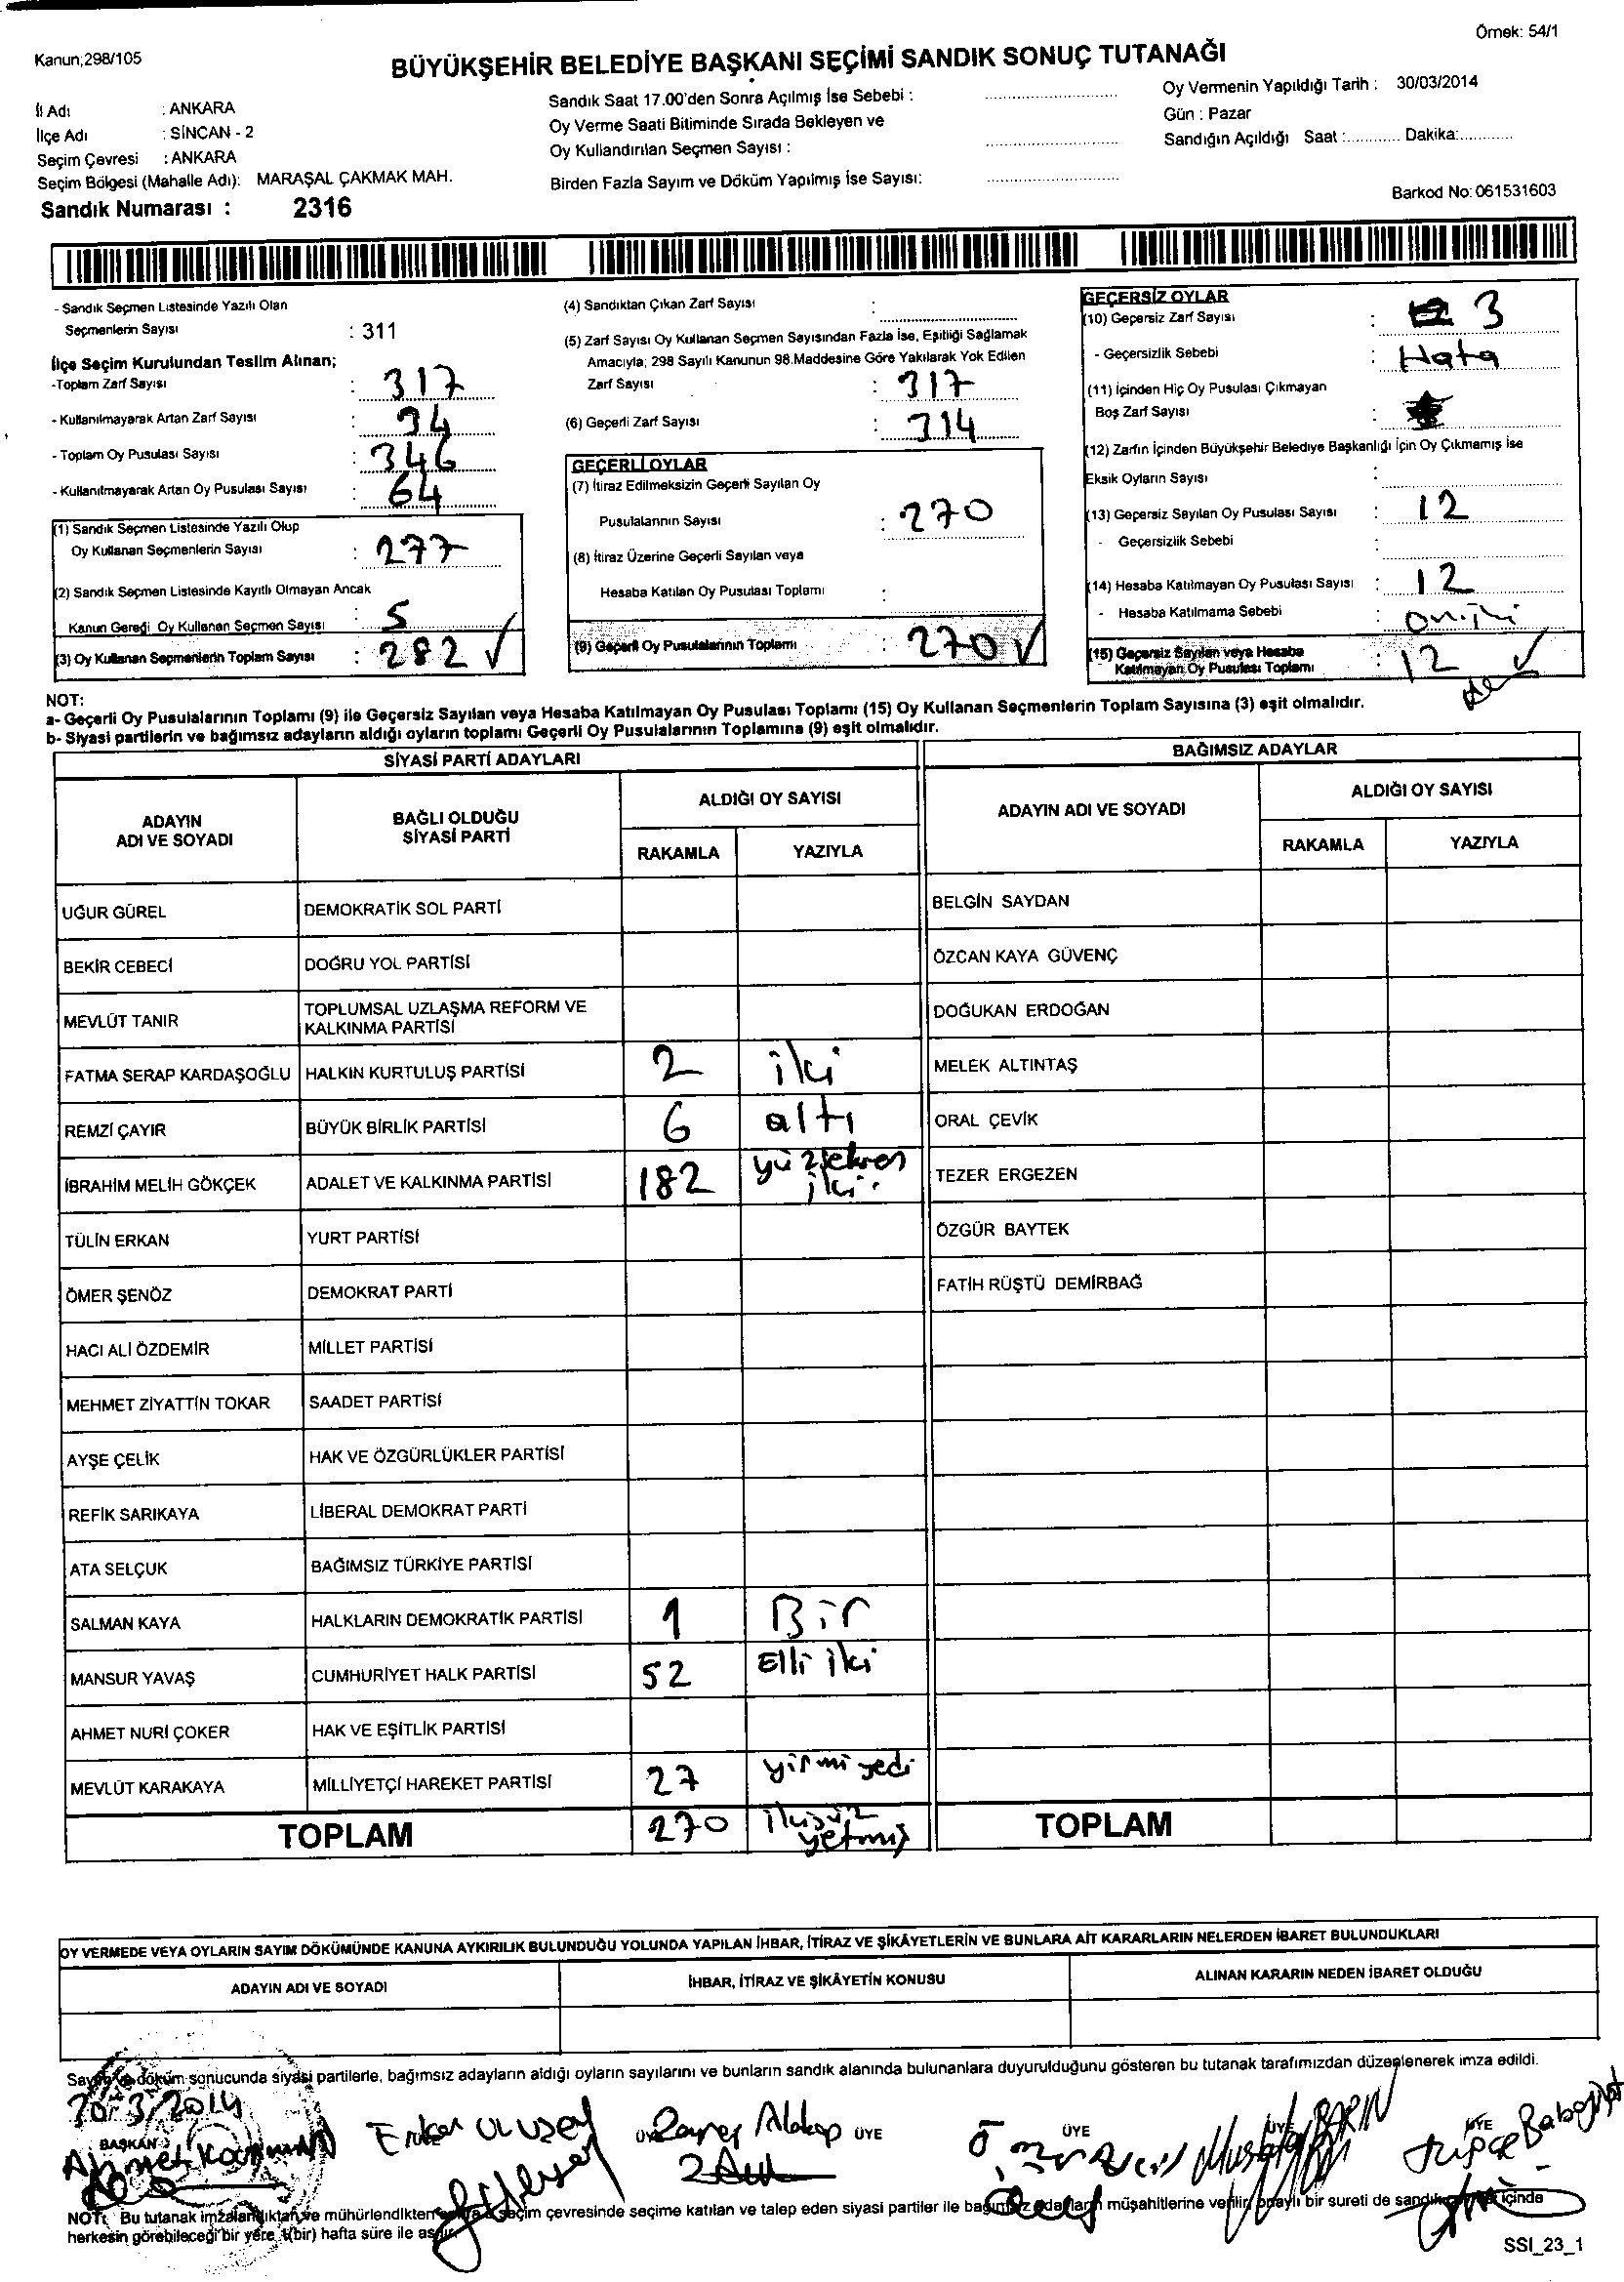 Örnek: 54/1
Kanun;298/105
BÜYÜKŞEHİR BELEDİYE BAŞKANI SEÇİMİ SANDIK SONUÇ TUTANAĞI
İl Adı : ANKARA
İlçe Adı : SİNCAN - 2
Seçim Çevresi : ANKARA
Seçim Bölgesi (Mahalle Adı): MARAŞAL ÇAKMAK MAH.
Sandık Numarası : 2316
Sandık Saat 17.00'den Sonra Açılmış İse Sebebi :
Oy Verme Saati Bitiminde Sırada Bekleyen ve
Oy Kullandırılan Seçmen Sayısı :
Birden Fazla Sayım ve Döküm Yapılmış İse Sayısı:
Oy Vermenin Yapıldığı Tarih : 30/03/2014
Gün : Pazar
Sandığın Açıldığı Saat :............ Dakika:............
Barkod No: 061531603
- Sandık Seçmen Listesinde Yazılı Olan
Seçmenlerin Sayısı : 311
İlçe Seçim Kurulundan Teslim Alınan;
-Toplam Zarf Sayısı : 317
- Kullanılmayarak Artan Zarf Sayısı : 34
- Toplam Oy Pusulası Sayısı : 346
- Kullanılmayarak Artan Oy Pusulası Sayısı : 64
(1) Sandık Seçmen Listesinde Yazılı Olup
Oy Kullanan Seçmenlerin Sayısı : 277
(2) Sandık Seçmen Listesinde Kayıtlı Olmayan Ancak
Kanun Gereği Oy Kullanan Seçmen Sayısı : 5
(3) Oy Kullanan Seçmenlerin Toplam Sayısı : 282 ✓
(4) Sandıktan Çıkan Zarf Sayısı :
(5) Zarf Sayısı Oy Kullanan Seçmen Sayısından Fazla İse, Eşitliği Sağlamak
Amacıyla; 298 Sayılı Kanunun 98.Maddesine Göre Yakılarak Yok Edilen
Zarf Sayısı : 317
(6) Geçerli Zarf Sayısı : 314
GEÇERLİ OYLAR
(7) İtiraz Edilmeksizin Geçerli Sayılan Oy
Pusulalarının Sayısı : 270
(8) İtiraz Üzerine Geçerli Sayılan veya
Hesaba Katılan Oy Pusulası Toplamı :
(9) Geçerli Oy Pusulalarının Toplamı : 270 ✓
GEÇERSİZ OYLAR
(10) Geçersiz Zarf Sayısı : 3
- Geçersizlik Sebebi : Hata
(11) İçinden Hiç Oy Pusulası Çıkmayan
Boş Zarf Sayısı :
(12) Zarfın İçinden Büyükşehir Belediye Başkanlığı İçin Oy Çıkmamış İse
Eksik Oyların Sayısı :
(13) Geçersiz Sayılan Oy Pusulası Sayısı : 12
- Geçersizlik Sebebi :
(14) Hesaba Katılmayan Oy Pusulası Sayısı : 12
- Hesaba Katılmama Sebebi : oniki
(15) Geçersiz Sayılan veya Hesaba
Katılmayan Oy Pusulası Toplamı : 12 ✓
NOT:
a- Geçerli Oy Pusulalarının Toplamı (9) ile Geçersiz Sayılan veya Hesaba Katılmayan Oy Pusulası Toplamı (15) Oy Kullanan Seçmenlerin Toplam Sayısına (3) eşit olmalıdır.
b- Siyasi partilerin ve bağımsız adayların aldığı oyların toplamı Geçerli Oy Pusulalarının Toplamına (9) eşit olmalıdır.
SİYASİ PARTİ ADAYLARI
ADAYIN ADI VE SOYADI
BAĞLI OLDUĞU SİYASİ PARTİ
ALDIĞI OY SAYISI
RAKAMLA YAZIYLA
UĞUR GÜREL DEMOKRATİK SOL PARTİ
BEKİR CEBECİ DOĞRU YOL PARTİSİ
MEVLÜT TANIR TOPLUMSAL UZLAŞMA REFORM VE KALKINMA PARTİSİ
FATMA SERAP KARDAŞOĞLU HALKIN KURTULUŞ PARTİSİ 2 iki
REMZİ ÇAYIR BÜYÜK BİRLİK PARTİSİ 6 altı
İBRAHİM MELİH GÖKÇEK ADALET VE KALKINMA PARTİSİ 182 yüzseksen iki
TÜLİN ERKAN YURT PARTİSİ
ÖMER ŞENÖZ DEMOKRAT PARTİ
HACI ALİ ÖZDEMİR MİLLET PARTİSİ
MEHMET ZİYATTİN TOKAR SAADET PARTİSİ
AYŞE ÇELİK HAK VE ÖZGÜRLÜKLER PARTİSİ
REFİK SARIKAYA LİBERAL DEMOKRAT PARTİ
ATA SELÇUK BAĞIMSIZ TÜRKİYE PARTİSİ
SALMAN KAYA HALKLARIN DEMOKRATİK PARTİSİ 1 Bir
MANSUR YAVAŞ CUMHURİYET HALK PARTİSİ 52 Elli iki
AHMET NURİ ÇOKER HAK VE EŞİTLİK PARTİSİ
MEVLÜT KARAKAYA MİLLİYETÇİ HAREKET PARTİSİ 27 yirmi yedi
TOPLAM 270 ikiyüz yetmiş
BAĞIMSIZ ADAYLAR
ADAYIN ADI VE SOYADI
ALDIĞI OY SAYISI
RAKAMLA YAZIYLA
BELGİN SAYDAN
ÖZCAN KAYA GÜVENÇ
DOĞUKAN ERDOĞAN
MELEK ALTINTAŞ
ORAL ÇEVİK
TEZER ERGEZEN
ÖZGÜR BAYTEK
FATİH RÜŞTÜ DEMİRBAĞ
TOPLAM
OY VERMEDE VEYA OYLARIN SAYIM DÖKÜMÜNDE KANUNA AYKIRILIK BULUNDUĞU YOLUNDA YAPILAN İHBAR, İTİRAZ VE ŞİKÂYETLERİN VE BUNLARA AİT KARARLARIN NELERDEN İBARET BULUNDUKLARI
ADAYIN ADI VE SOYADI İHBAR, İTİRAZ VE ŞİKÂYETİN KONUSU ALINAN KARARIN NEDEN İBARET OLDUĞU
Sayım ve döküm sonucunda siyasi partilerle, bağımsız adayların aldığı oyların sayılarını ve bunların sandık alanında bulunanlara duyurulduğunu gösteren bu tutanak tarafımızdan düzenlenerek imza edildi.
30/3/2014
BAŞKAN ÜYE ÜYE ÜYE ÜYE
Ahmet Mustafa BARIN
NOT: Bu tutanak imzalandıktan ve mühürlendikten sonra seçim çevresinde seçime katılan ve talep eden siyasi partiler ile bağımsız adayların müşahitlerine verilir, onaylı bir sureti de sandık içinde
herkesin görebileceği bir yere 1(bir) hafta süre ile asılır.
SSI_23_1